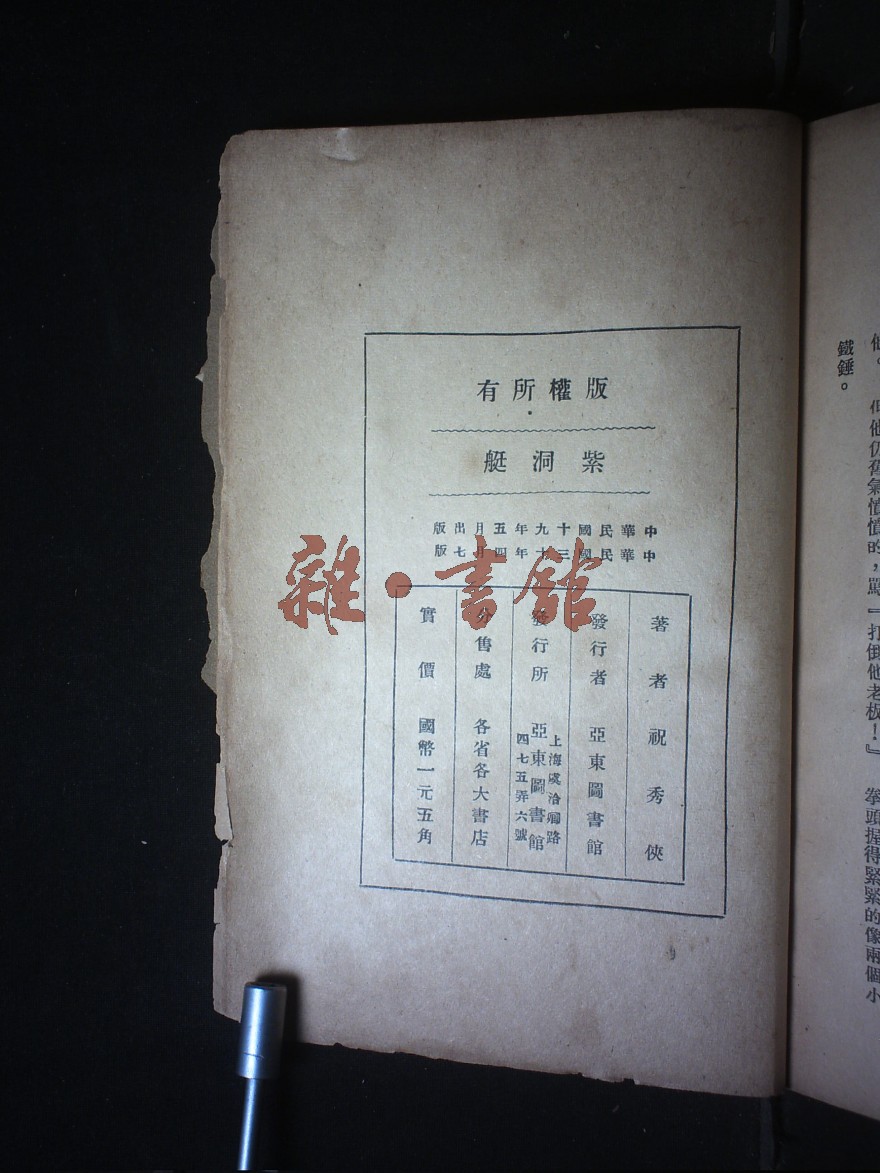 版權所有
紫洞艇
中華民國十九年五月出版
中華民國三十年四月七版
著者 祝秀俠
發行者 亞東圖書館
發行所 亞東圖書館
上海虞洽卿路
四七五弄六號
分售處 各省各大書店
實價 國幣一元五角
雜·書館
他仍舊氣憤憤的，罵『打倒他老板！』 拳頭握得緊緊的像兩個小
鐵錘。